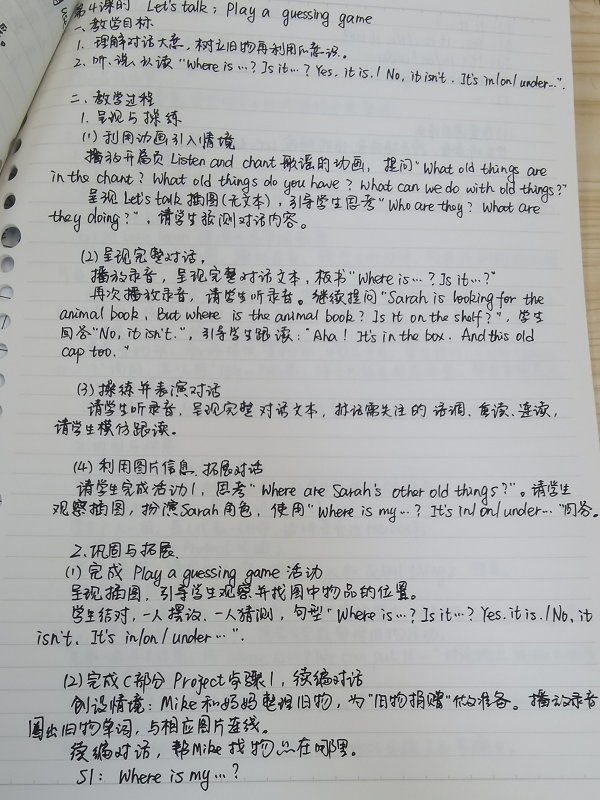 第4课时 Let's talk; Play a guessing game
一、教学目标
1. 理解对话大意,树立旧物再利用的意识。
2. 听、说、认读 "Where is …? Is it …? Yes, it is. / No, it isn't. It's in/on/under…".
二、教学过程
1. 呈现与操练
(1) 利用动画引入情境
播放开篇页 Listen and chant 歌谣的动画, 提问 "What old things are
in the chant? What old things do you have? What can we do with old things?"
呈现 Let's talk 插图(无文本), 引导学生思考 "Who are they? What are
they doing?", 请学生猜测对话内容。
(2) 呈现完整对话。
播放录音, 呈现完整对话文本, 板书 "Where is …? Is it …?"
再次播放录音, 请学生听录音。继续提问 "Sarah is looking for the
animal book. But where is the animal book? Is it on the shelf?", 学生
回答 "No, it isn't.", 引导学生跟读: "Aha! It's in the box. And this old
cap too."
(3) 操练并表演对话
请学生听录音, 呈现完整对话文本, 讨论需关注的语调、重读、连读,
请学生模仿跟读。
(4) 利用图片信息, 拓展对话
请学生完成活动1, 思考 "Where are Sarah's other old things?"。请学生
观察插图, 扮演Sarah角色, 使用 "Where is my…? It's in/on/under…"问答。
2. 巩固与拓展
(1) 完成 Play a guessing game 活动
呈现插图, 引导学生观察并找图中物品的位置。
学生结对, 一人摆放, 一人猜测, 句型 "Where is …? Is it …? Yes, it is. / No, it
isn't. It's in/on/under…".
(2) 完成C部分 Project 步骤1, 续编对话
创设情境: Mike和妈妈整理旧物, 为"旧物捐赠"做准备。播放录音
圈出旧物单词, 与相应图片连线。
续编对话, 帮Mike找物品在哪里。
S1: Where is my …?